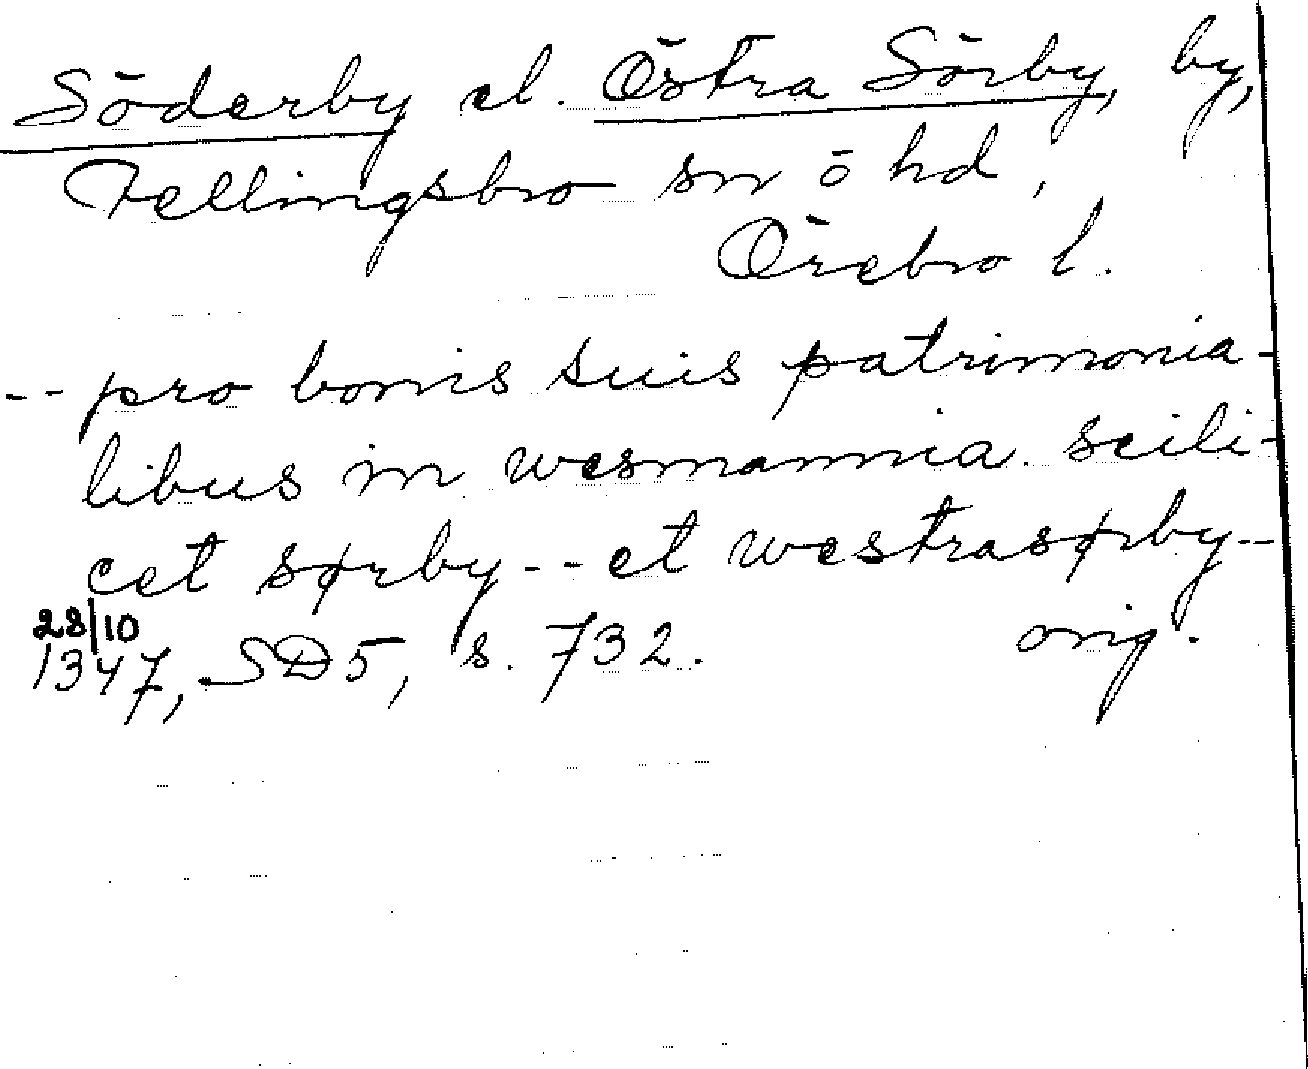 Söderby el. Östra Sörby, by,
Fellingsbro sn ō hd,
Örebro l.
-- pro bonis suis patrimonia-
libus in wesmannia. scili-
cet sørby -- et westrasørby --
28/10
1347, SD5, s. 732. orig.